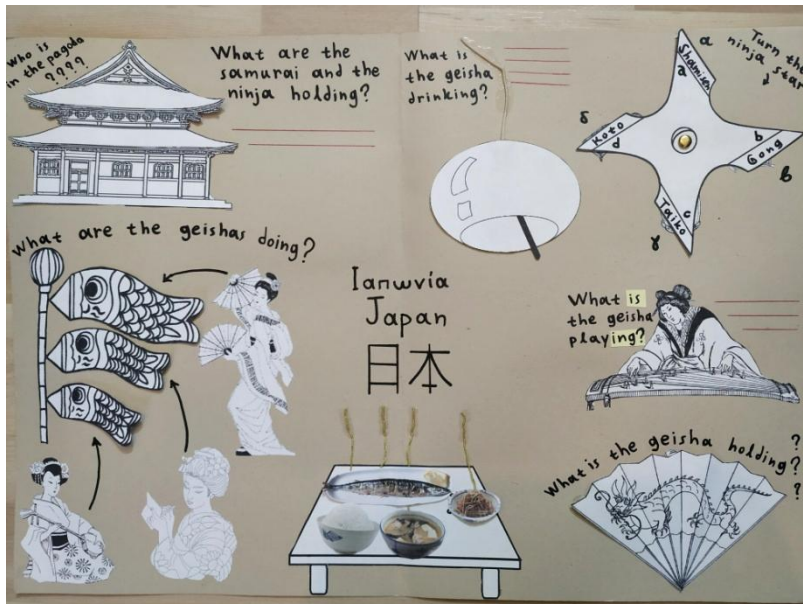 Who is
in the pagoda
????
What are the
samurai and the
ninja holding?
What is
the geisha
drinking?
Turn the
ninja star
a
Shamisen
a
δ
Koto
d
b
Gong
b
c
Taiko
γ
What are the geishas doing?
Ιαπωνία
Japan
日本
What is
the geisha
playing?
What is the geisha holding?
?
?